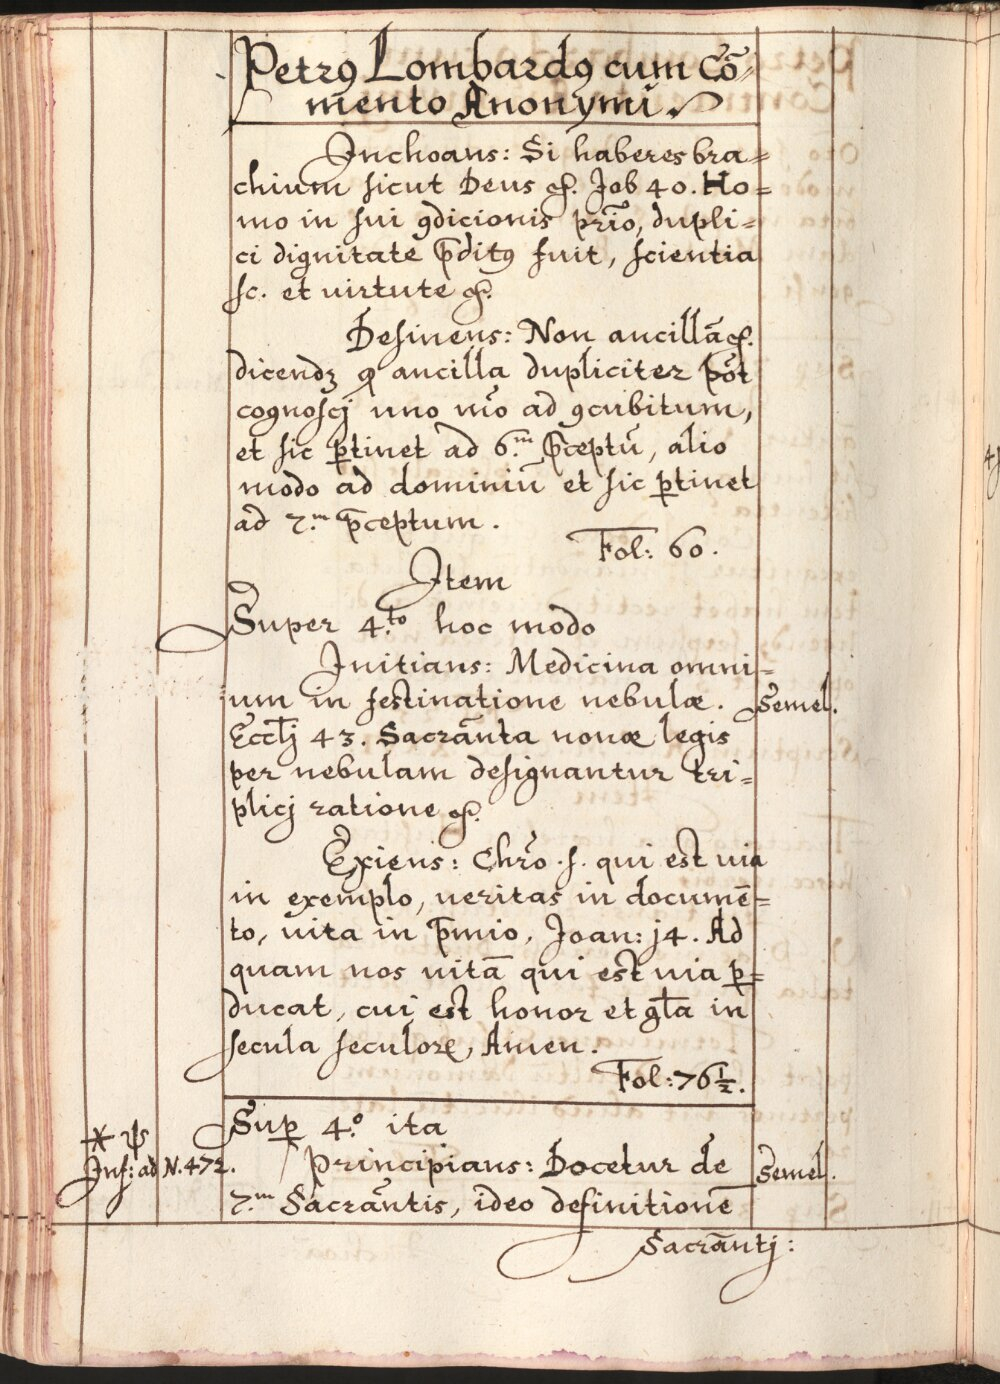 Petrꝰ Lombardꝰ cum Cõ⸗
mento Anonymi.
Inchoans: Si haberes bra⸗
chium sicut Deus ꝛc. Job 40. Ho⸗
mo in sui ꝯdicionis prĩo, dupli⸗
ci dignitate p̄ditꝰ fuit, scientia
sc. et virtute ꝛc.
Desinens: Non ancillā ꝛc.
dicendꝫ ꝙ ancilla dupliciter põt
cognoscj uno mõ ad ꝯcubitum,
et sic ꝑtinet ad 6.m p̄ceptũ, alio
modo ad dominiũ et sic ꝑtinet
ad 7.m p̄ceptum.
Fol: 60.
Item
Super 4.to hoc modo
Initians: Medicina omni⸗
um in festinatione nebulæ.
Semel.
Eccl̃j 43. Sacrãnta novæ legis
per nebulam designantur tri⸗
plicj ratione ꝛc.
Exiens: Chr̃o .s. qui est via
in exemplo, veritas in documẽ⸗
to, vita in p̄mio, Joan: j4. Ad
quam nos vitã qui est via ꝑ⸗
ducat, cui est honor et gl̃a in
secula seculorꝝ, Amen.
Fol: 76½.
Suꝑ 4.o ita
* ψ
Inf: ad N. 472.
Principians: Docetur de
Semel.
7.m Sacrãntis, ideo definitionẽ
Sacrãntj: